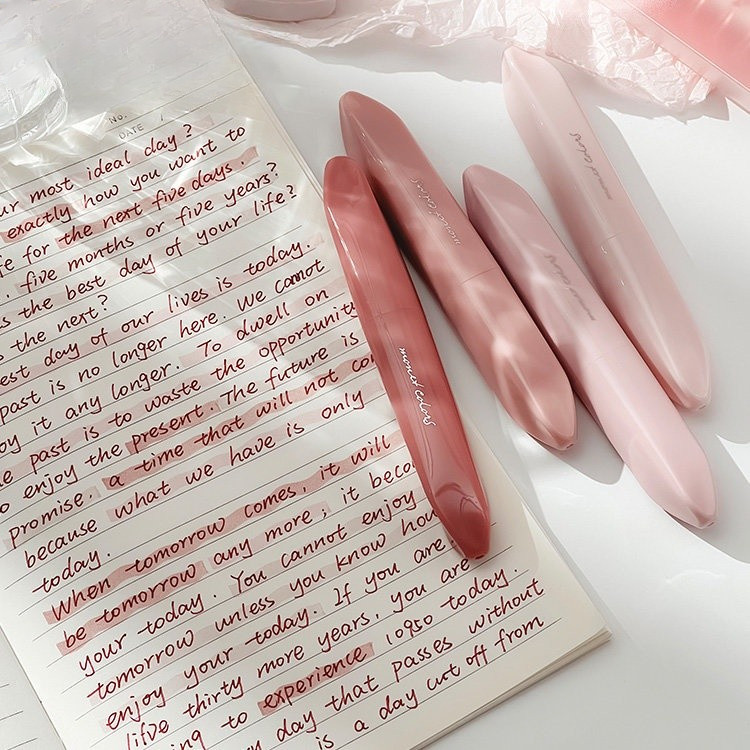 No.
DATE
ur most ideal day?
exactly how you want to
fe for the next five days.
five months or five years?
s the best day of your life?
the next?
est day of our lives is today.
past is no longer here. We cannot
oy it any longer. To dwell on
e past is to waste the opportunity
o enjoy the present. The future is
promise. a time that will not co
because what we have is only
today.
When tomorrow comes, it will
be tomorrow any more; it beco
your today. You cannot enjoy
tomorrow unless you know how
enjoy your today. If you are
lifve thirty more years, you are
ing to experience 10950 today.
y day that passes without
is a day cut off from
moned colors
moned colors
moned colors
moned colors